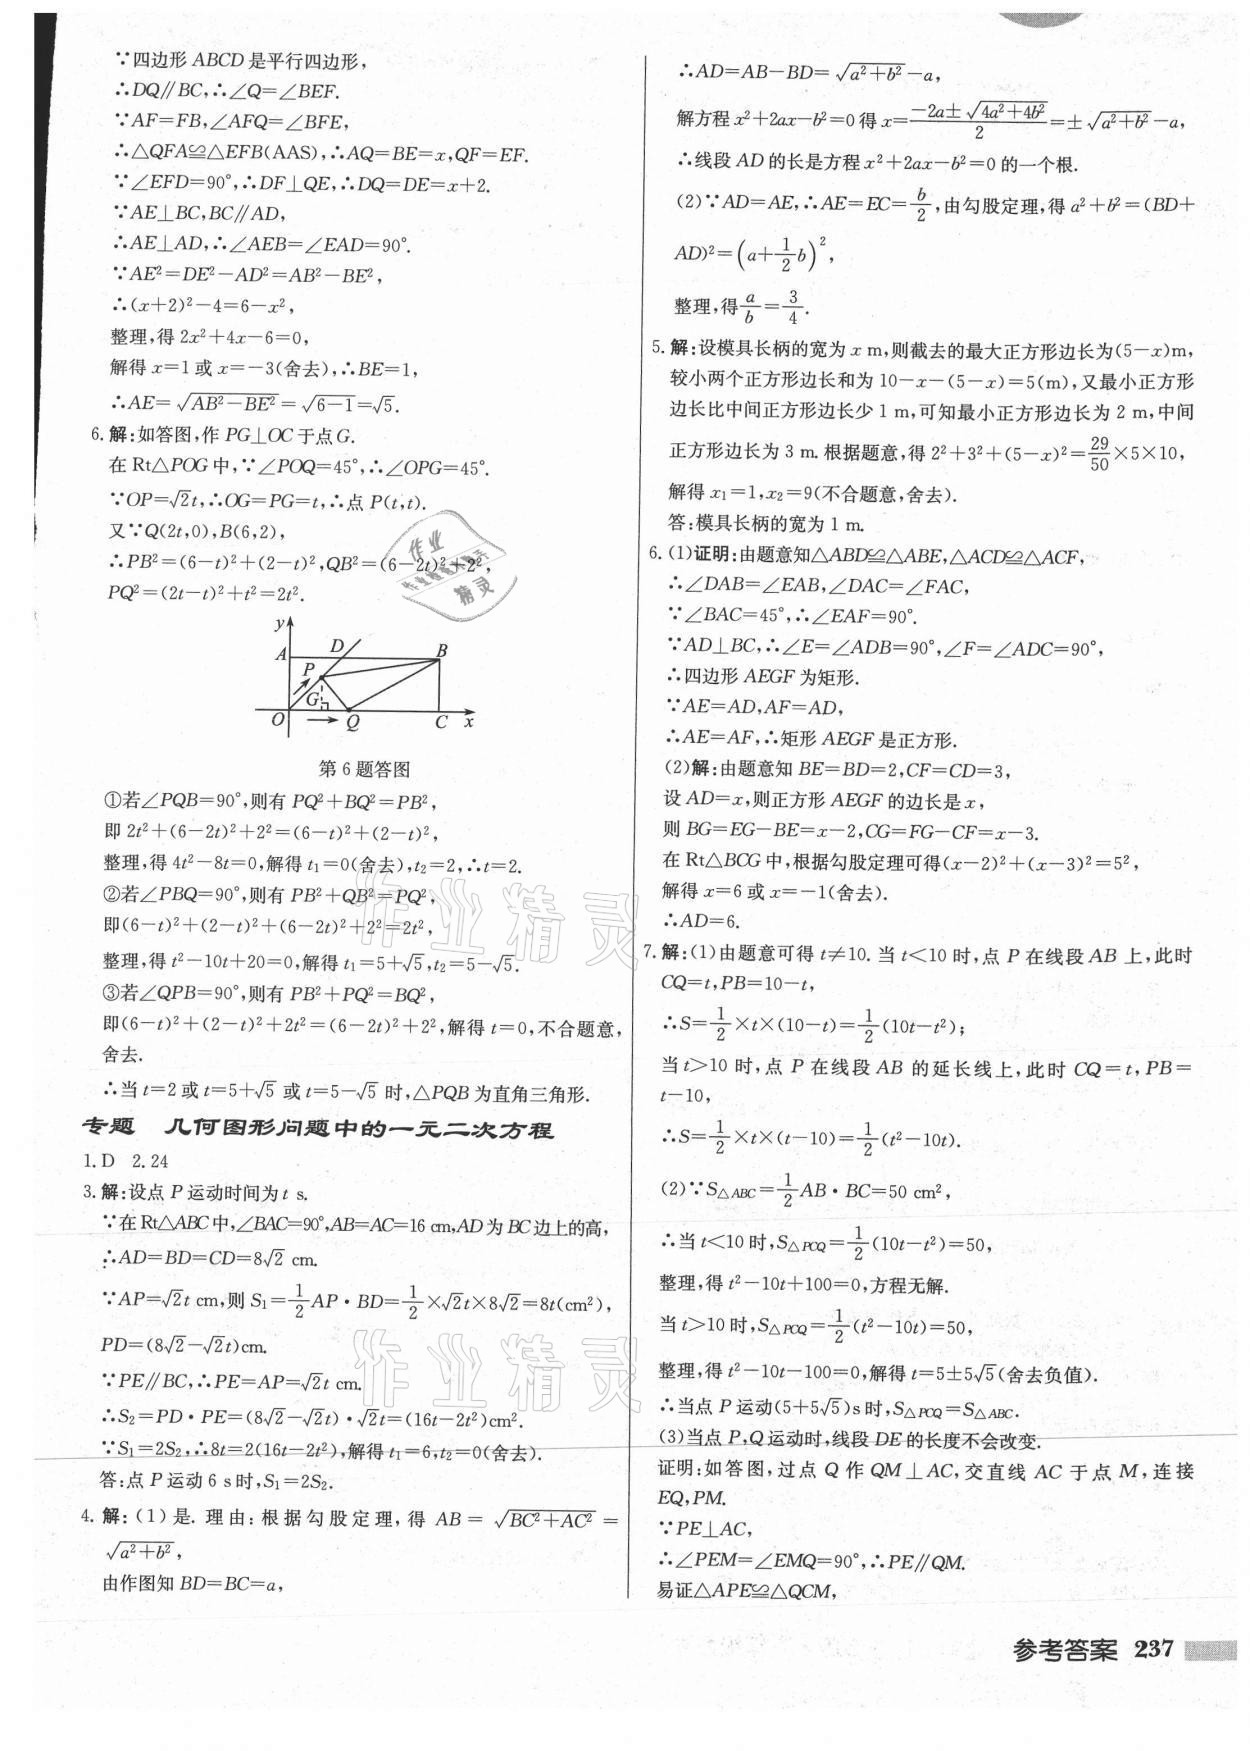 ∵四边形 ABCD 是平行四边形,
∴DQ∥BC,∴∠Q=∠BEF.
∵AF=FB,∠AFQ=∠BFE,
∴△QFA≌△EFB(AAS),∴AQ=BE=x,QF=EF.
∵∠EFD=90°,∴DF⊥QE,∴DQ=DE=x+2.
∵AE⊥BC,BC∥AD,
∴AE⊥AD,∴∠AEB=∠EAD=90°.
∵AE²=DE²-AD²=AB²-BE²,
∴(x+2)²-4=6-x²,
整理,得 2x²+4x-6=0,
解得 x=1 或 x=-3(舍去),∴BE=1,
∴AE=√(AB²-BE²)=√(6-1)=√5.
6.解:如答图,作 PG⊥OC 于点 G.
在 Rt△POG 中,∵∠POQ=45°,∴∠OPG=45°.
∵OP=√2t,∴OG=PG=t,∴点 P(t,t).
又∵Q(2t,0),B(6,2),
∴PB²=(6-t)²+(2-t)²,QB²=(6-2t)²+2²,
PQ²=(2t-t)²+t²=2t².
y
A D B
P
G
O Q C x
第 6 题答图
①若∠PQB=90°,则有 PQ²+BQ²=PB²,
即 2t²+(6-2t)²+2²=(6-t)²+(2-t)²,
整理,得 4t²-8t=0,解得 t₁=0(舍去),t₂=2,∴t=2.
②若∠PBQ=90°,则有 PB²+QB²=PQ²,
即(6-t)²+(2-t)²+(6-2t)²+2²=2t²,
整理,得 t²-10t+20=0,解得 t₁=5+√5,t₂=5-√5.
③若∠QPB=90°,则有 PB²+PQ²=BQ²,
即(6-t)²+(2-t)²+2t²=(6-2t)²+2²,解得 t=0,不合题意,
舍去.
∴当 t=2 或 t=5+√5 或 t=5-√5 时,△PQB 为直角三角形.
专题 几何图形问题中的一元二次方程
1.D 2.24
3.解:设点 P 运动时间为 t s.
∵在 Rt△ABC 中,∠BAC=90°,AB=AC=16 cm,AD 为 BC 边上的高,
∴AD=BD=CD=8√2 cm.
∵AP=√2t cm,则 S₁=1/2AP·BD=1/2×√2t×8√2=8t(cm²),
PD=(8√2-√2t)cm.
∵PE∥BC,∴PE=AP=√2t cm.
∴S₂=PD·PE=(8√2-√2t)·√2t=(16t-2t²)cm².
∵S₁=2S₂,∴8t=2(16t-2t²),解得 t₁=6,t₂=0(舍去).
答:点 P 运动 6 s时,S₁=2S₂.
4.解:(1)是.理由:根据勾股定理,得 AB=√(BC²+AC²)=
√(a²+b²),
由作图知 BD=BC=a,
∴AD=AB-BD=√(a²+b²)-a,
解方程 x²+2ax-b²=0 得 x=(-2a±√(4a²+4b²))/2=±√(a²+b²)-a,
∴线段 AD 的长是方程 x²+2ax-b²=0 的一个根.
(2)∵AD=AE,∴AE=EC=b/2,由勾股定理,得 a²+b²=(BD+
AD)²=(a+1/2b)²,
整理,得a/b=3/4.
5.解:设模具长柄的宽为 x m,则截去的最大正方形边长为(5-x)m,
较小两个正方形边长和为 10-x-(5-x)=5(m),又最小正方形
边长比中间正方形边长少 1 m,可知最小正方形边长为 2 m,中间
正方形边长为 3 m.根据题意,得 2²+3²+(5-x)²=29/50×5×10,
解得 x₁=1,x₂=9(不合题意,舍去).
答:模具长柄的宽为 1 m.
6.(1)证明:由题意知△ABD≌△ABE,△ACD≌△ACF,
∴∠DAB=∠EAB,∠DAC=∠FAC,
∵∠BAC=45°,∴∠EAF=90°.
∵AD⊥BC,∴∠E=∠ADB=90°,∠F=∠ADC=90°,
∴四边形 AEGF 为矩形.
∵AE=AD,AF=AD,
∴AE=AF,∴矩形 AEGF 是正方形.
(2)解:由题意知 BE=BD=2,CF=CD=3,
设 AD=x,则正方形 AEGF 的边长是 x,
则 BG=EG-BE=x-2,CG=FG-CF=x-3.
在 Rt△BCG 中,根据勾股定理可得(x-2)²+(x-3)²=5²,
解得 x=6 或 x=-1(舍去).
∴AD=6.
7.解:(1)由题意可得 t≠10.当 t<10 时,点 P 在线段 AB 上,此时
CQ=t,PB=10-t,
∴S=1/2×t×(10-t)=1/2(10t-t²);
当 t>10 时,点 P 在线段 AB 的延长线上,此时 CQ=t,PB=
t-10,
∴S=1/2×t×(t-10)=1/2(t²-10t).
(2)∵S△ABC=1/2AB·BC=50 cm²,
∴当 t<10 时,S△PCQ=1/2(10t-t²)=50,
整理,得 t²-10t+100=0,方程无解.
当 t>10 时,S△PCQ=1/2(t²-10t)=50,
整理,得 t²-10t-100=0,解得 t=5±5√5(舍去负值).
∴当点 P 运动(5+5√5)s 时,S△PCQ=S△ABC.
(3)当点 P,Q 运动时,线段 DE 的长度不会改变.
证明:如答图,过点 Q 作 QM⊥AC,交直线 AC 于点 M,连接
EQ,PM.
∵PE⊥AC,
∴∠PEM=∠EMQ=90°,∴PE∥QM.
易证△APE≌△QCM,
参考答案 237
作业精灵
作业精灵
作业
精灵